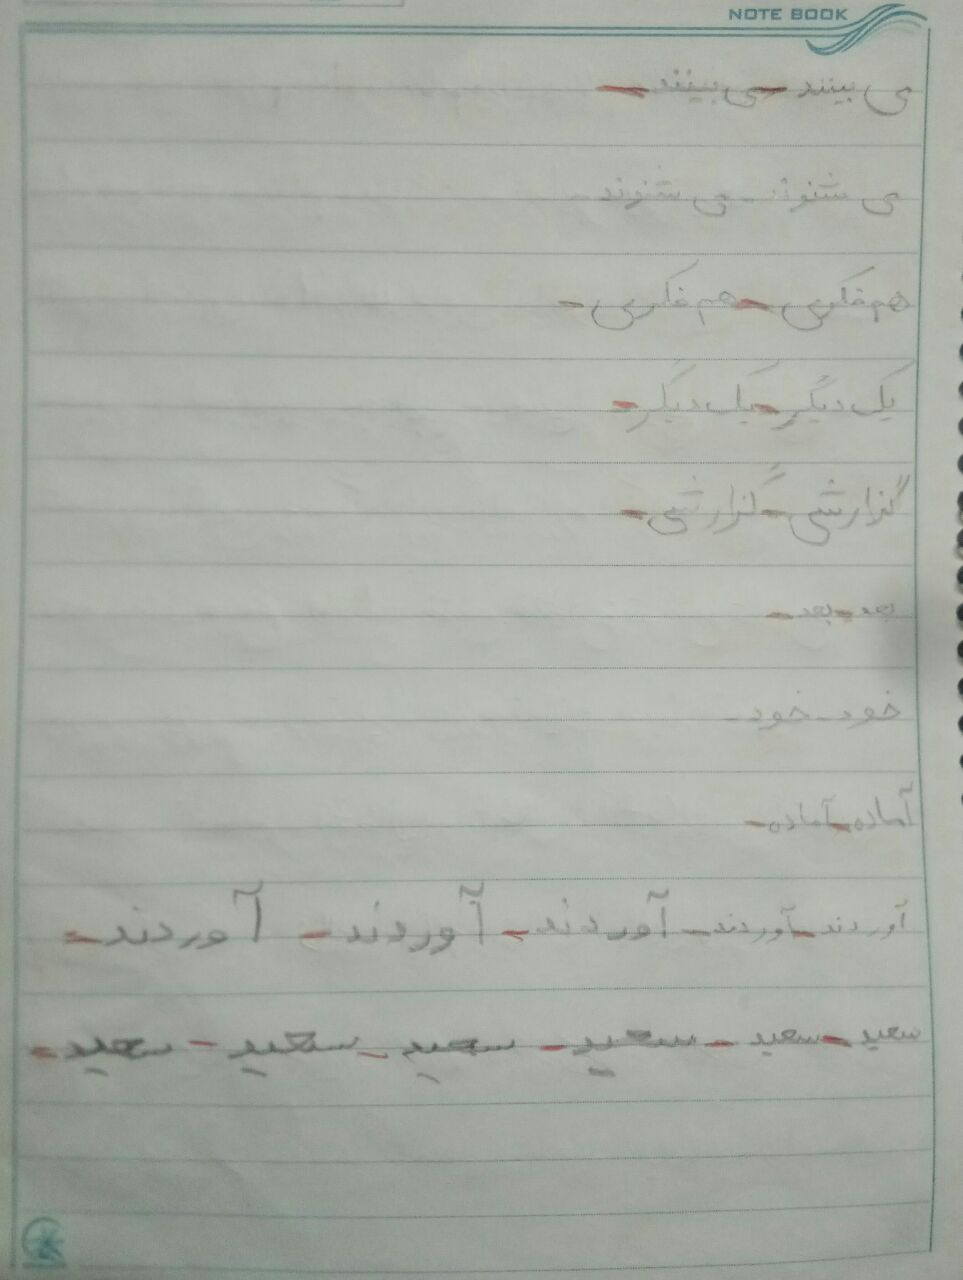 NOTE BOOK
می بینند - می بینند -
می شنوند - می شنوند -
هم فکری - هم فکری -
یک دیگر - یک دیگر -
گزارشی - گزارشی -
بعد - بعد -
خود - خود -
آماده - آماده -
آوردند - آوردند - آوردند - آوردند - آوردند -
سعید - سعید - سعید - سعید - سعید - سعید -